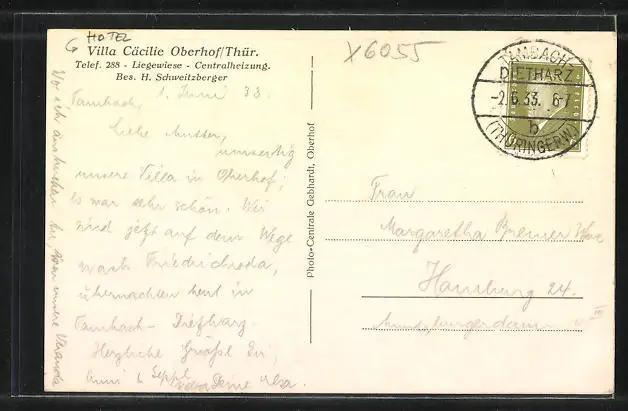 HOTEL
Villa Cäcilie Oberhof/Thür.
Telef. 288 - Liegewiese - Centralheizung.
Bes. H. Schweitzberger
X6055
TAMBACH-
DIETHARZ
-2.6.33. 6-7
b
(THÜRINGERW.)
Tambach, 1. Juni 33.
Liebe Mutter,
umseitig
unsere Villa in Oberhof;
es war sehr schön. Wir
sind jetzt auf dem Wege
nach Friedrichroda,
übernachten heut in
Tambach-Dietharz.
Herzliche Grüße Dir,
Deine
unsere Veranda
Photo-Centrale Gebhardt, Oberhof
Frau
Margaretha Bremer Wwe
Hamburg 24.
III